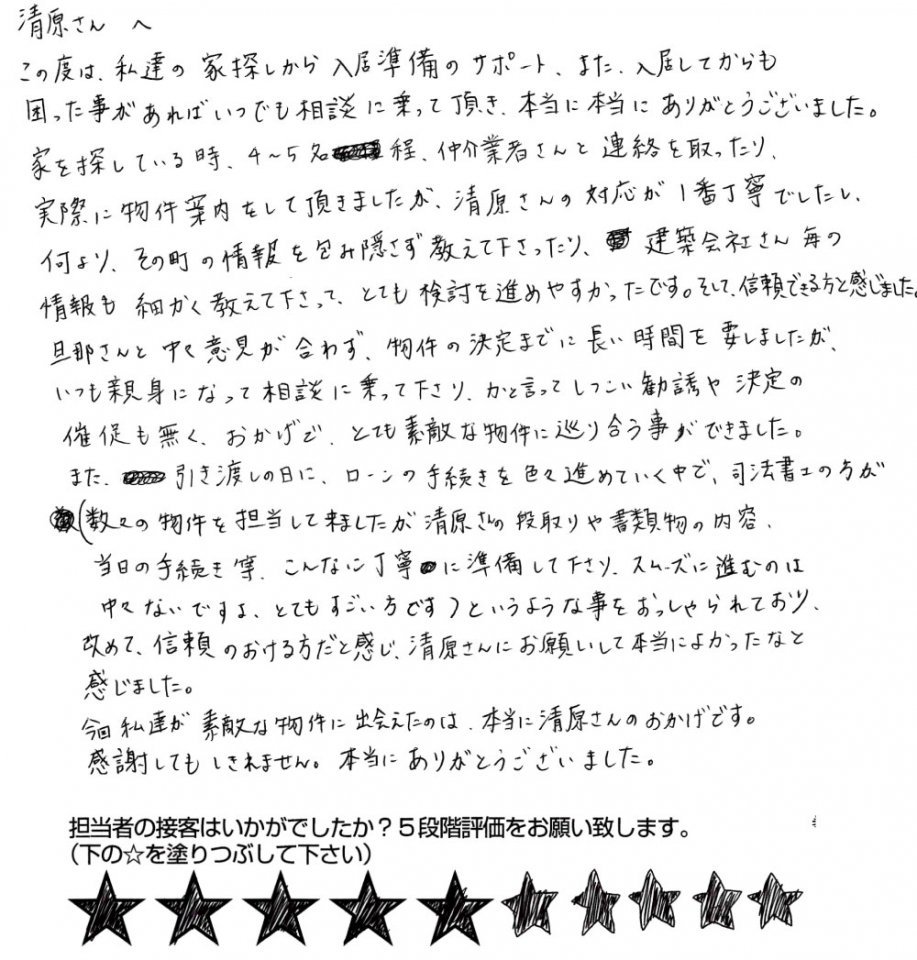 清原さん へ
この度は、私達の家探しから入居準備のサポート、また、入居してからも
困った事があればいつでも相談に乗って頂き、本当に本当にありがとうございました。
家を探している時、4~5名程、仲介業者さんと連絡を取ったり、
実際に物件案内をして頂きましたが、清原さんの対応が1番丁寧でしたし、
何より、その町の情報を包み隠さず教えて下さったり、建築会社さん毎の
情報も細かく教えて下さって、とても検討を進めやすかったです。そして、信頼できる方と感じました。
旦那さんと中々意見が合わず、物件の決定までに長い時間を要しましたが、
いつも親身になって相談に乗って下さり、かと言ってしつこい勧誘や決定の
催促も無く、おかげで、とても素敵な物件に巡り合う事ができました。
また、引き渡しの日に、ローンの手続きを色々進めていく中で、司法書士の方が
(数々の物件を担当して来ましたが清原さんの段取りや書類物の内容、
当日の手続き等、こんなに丁寧に準備して下さり、スムーズに進むのは
中々ないですよ、とてもすごい方です)というような事をおっしゃられており、
改めて、信頼のおける方だと感じ、清原さんにお願いして本当によかったなと
感じました。
今回私達が素敵な物件に出会えたのは、本当に清原さんのおかげです。
感謝してもしきれません。本当にありがとうございました。
担当者の接客はいかがでしたか?5段階評価をお願い致します。
(下の☆を塗りつぶして下さい)